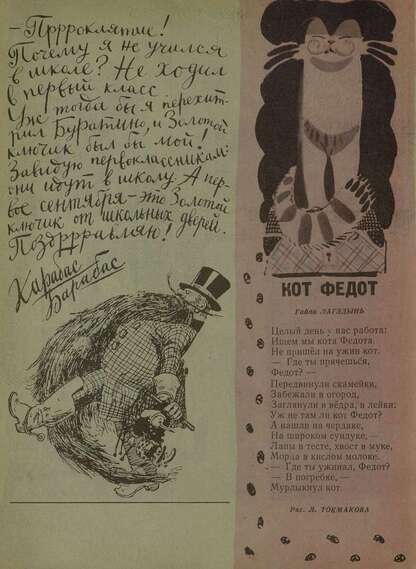 — Пррроклятие!
Почему я не учился
в школе? Не ходил
в первый класс.
Уже тогда бы я перехит-
рил Буратино, и Золотой
ключик был бы мой!
Завидую первоклассникам:
они идут в школу. А пер-
вое сентября — это Золотой
ключик от школьных дверей.
Поздррравляю!
Карабас
Барабас
КОТ ФЕДОТ
Гайда ЛАГЗДЫНЬ
Целый день у нас работа:
Ищем мы кота Федота.
Не пришёл на ужин кот.
— Где ты прячешься,
Федот? —
Передвинули скамейки,
Забежали в огород,
Заглянули в вёдра, в лейки:
Уж не там ли кот Федот?
А нашли на чердаке,
На широком сундуке, —
Лапы в тесте, хвост в муке,
Морда в кислом молоке.
— Где ты ужинал, Федот?
— В погребке, —
Мурлыкнул кот.
Рис. Л. ТОКМАКОВА